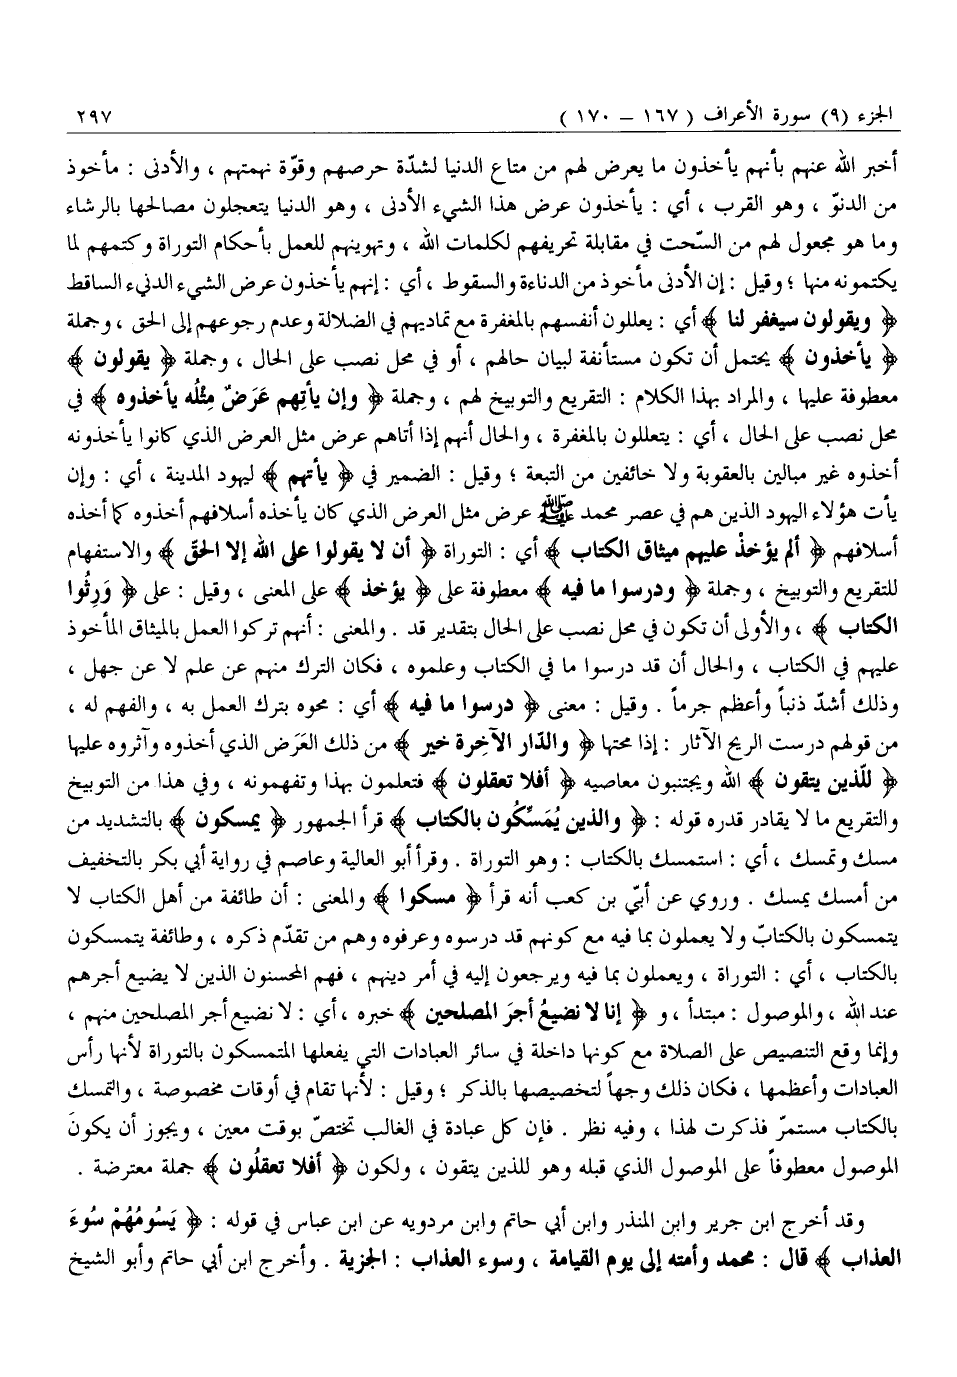 الجزء (٩) سورة الأعراف ( ١٦٧ – ١٧٠ ) ٢٩٧
أخبر الله عنهم بأنهم يأخذون ما يعرض لهم من متاع الدنيا لشدّة حرصهم وقوّة نهمتهم ، والأدنى : مأخوذ
من الدنوّ ، وهو القرب ، أي : يأخذون عرض هذا الشيء الأدنى ، وهو الدنيا يتعجلون مصالحها بالرشاء
وما هو مجعول لهم من السّحت في مقابلة تحريفهم لكلمات الله ، وتهوينهم للعمل بأحكام التوراة وكتمهم لما
يكتمونه منها ؛ وقيل : إن الأدنى مأخوذ من الدناءة والسقوط ، أي : إنهم يأخذون عرض الشيء الدنيء الساقط
﴿ ويقولون سيغفر لنا ﴾ أي : يعللون أنفسهم بالمغفرة مع تماديهم في الضلالة وعدم رجوعهم إلى الحق ، وجملة
﴿ يأخذون ﴾ يحتمل أن تكون مستأنفة لبيان حالهم ، أو في محل نصب على الحال ، وجملة ﴿ يقولون ﴾
معطوفة عليها ، والمراد بهذا الكلام : التقريع والتوبيخ لهم ، وجملة ﴿ وإن يأتِهم عَرَضٌ مِثْلُه يأخذوه ﴾ في
محل نصب على الحال ، أي : يتعللون بالمغفرة ، والحال أنهم إذا أتاهم عرض مثل العرض الذي كانوا يأخذونه
أخذوه غير مبالين بالعقوبة ولا خائفين من التبعة ؛ وقيل : الضمير في ﴿ يأتهم ﴾ ليهود المدينة ، أي : وإن
يأت هؤلاء اليهود الذين هم في عصر محمد ﷺ عرض مثل العرض الذي كان يأخذه أسلافهم أخذوه كما أخذه
أسلافهم ﴿ ألم يؤخذْ عليهم ميثاق الكتاب ﴾ أي : التوراة ﴿ أن لا يقولوا على الله إلا الحقّ ﴾ والاستفهام
للتقريع والتوبيخ ، وجملة ﴿ ودرسوا ما فيه ﴾ معطوفة على ﴿ يؤخذ ﴾ على المعنى ، وقيل : على ﴿ وَرِثُوا
الكتاب ﴾ ، والأولى أن تكون في محل نصب على الحال بتقدير قد . والمعنى : أنهم تركوا العمل بالميثاق المأخوذ
عليهم في الكتاب ، والحال أن قد درسوا ما في الكتاب وعلموه ، فكان الترك منهم عن علم لا عن جهل ،
وذلك أشدّ ذنباً وأعظم جرماً . وقيل : معنى ﴿ درسوا ما فيه ﴾ أي : محوه بترك العمل به ، والفهم له ،
من قولهم درست الريح الآثار : إذا محتها ﴿ والدّار الآخِرة خير ﴾ من ذلك العَرَض الذي أخذوه وآثروه عليها
﴿ للّذين يتقون ﴾ الله ويجتنبون معاصيه ﴿ أفلا تعقلون ﴾ فتعلمون بهذا وتفهمونه ، وفي هذا من التوبيخ
والتقريع ما لا يقادر قدره قوله : ﴿ والذين يُمَسِّكُون بالكتاب ﴾ قرأ الجمهور ﴿ يمسكون ﴾ بالتشديد من
مسك وتمسك ، أي : استمسك بالكتاب : وهو التوراة . وقرأ أبو العالية وعاصم في رواية أبي بكر بالتخفيف
من أمسك يمسك . وروي عن أبيّ بن كعب أنه قرأ ﴿ مسكوا ﴾ والمعنى : أن طائفة من أهل الكتاب لا
يتمسكون بالكتاب ولا يعملون بما فيه مع كونهم قد درسوه وعرفوه وهم من تقدّم ذكره ، وطائفة يتمسكون
بالكتاب ، أي : التوراة ، ويعملون بما فيه ويرجعون إليه في أمر دينهم ، فهم المحسنون الذين لا يضيع أجرهم
عند الله ، والموصول : مبتدأ ، و ﴿ إنا لا نضيعُ أجرَ المصلحين ﴾ خبره ، أي : لا نضيع أجر المصلحين منهم ،
وإنما وقع التنصيص على الصلاة مع كونها داخلة في سائر العبادات التي يفعلها المتمسكون بالتوراة لأنها رأس
العبادات وأعظمها ، فكان ذلك وجهاً لتخصيصها بالذكر ؛ وقيل : لأنها تقام في أوقات مخصوصة ، والتمسك
بالكتاب مستمرّ فذكرت لهذا ، وفيه نظر . فإن كل عبادة في الغالب تختصّ بوقت معين ، ويجوز أن يكونَ
الموصول معطوفاً على الموصول الذي قبله وهو للذين يتقون ، ولكون ﴿ أفلا تعقلُون ﴾ جملة معترضة .
وقد أخرج ابن جرير وابن المنذر وابن أبي حاتم وابن مردويه عن ابن عباس في قوله : ﴿ يَسُومُهُمْ سُوءَ
العذاب ﴾ قال : محمد وأمته إلى يوم القيامة ، وسوء العذاب : الجزية . وأخرج ابن أبي حاتم وأبو الشيخ